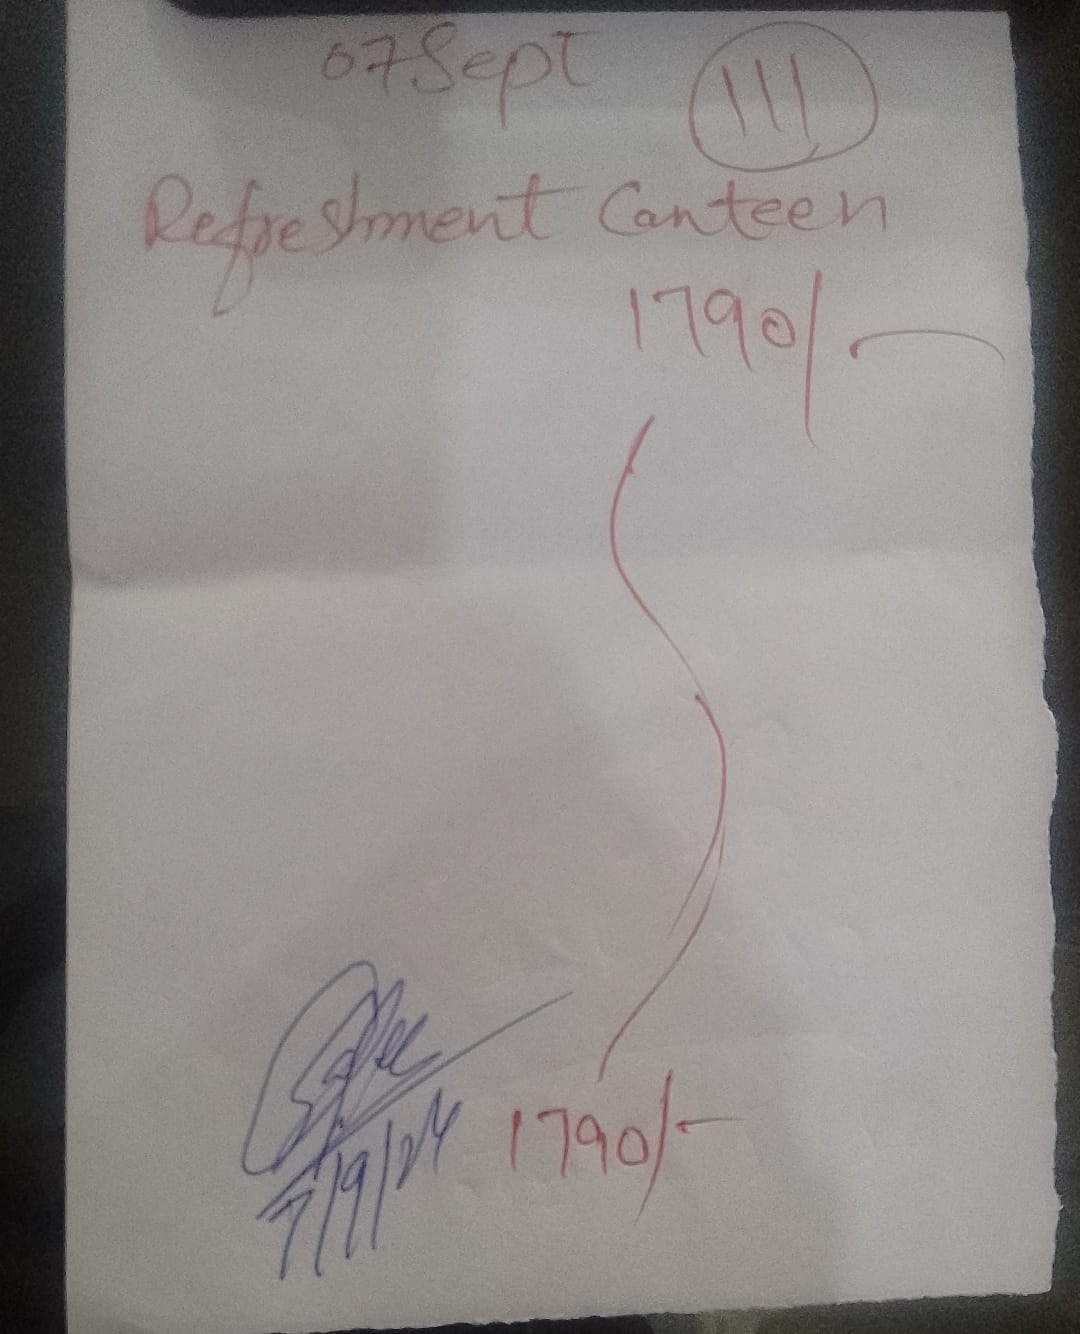 07 Sept
111
Refreshment Canteen
1790/-
1790/-
7/9/24